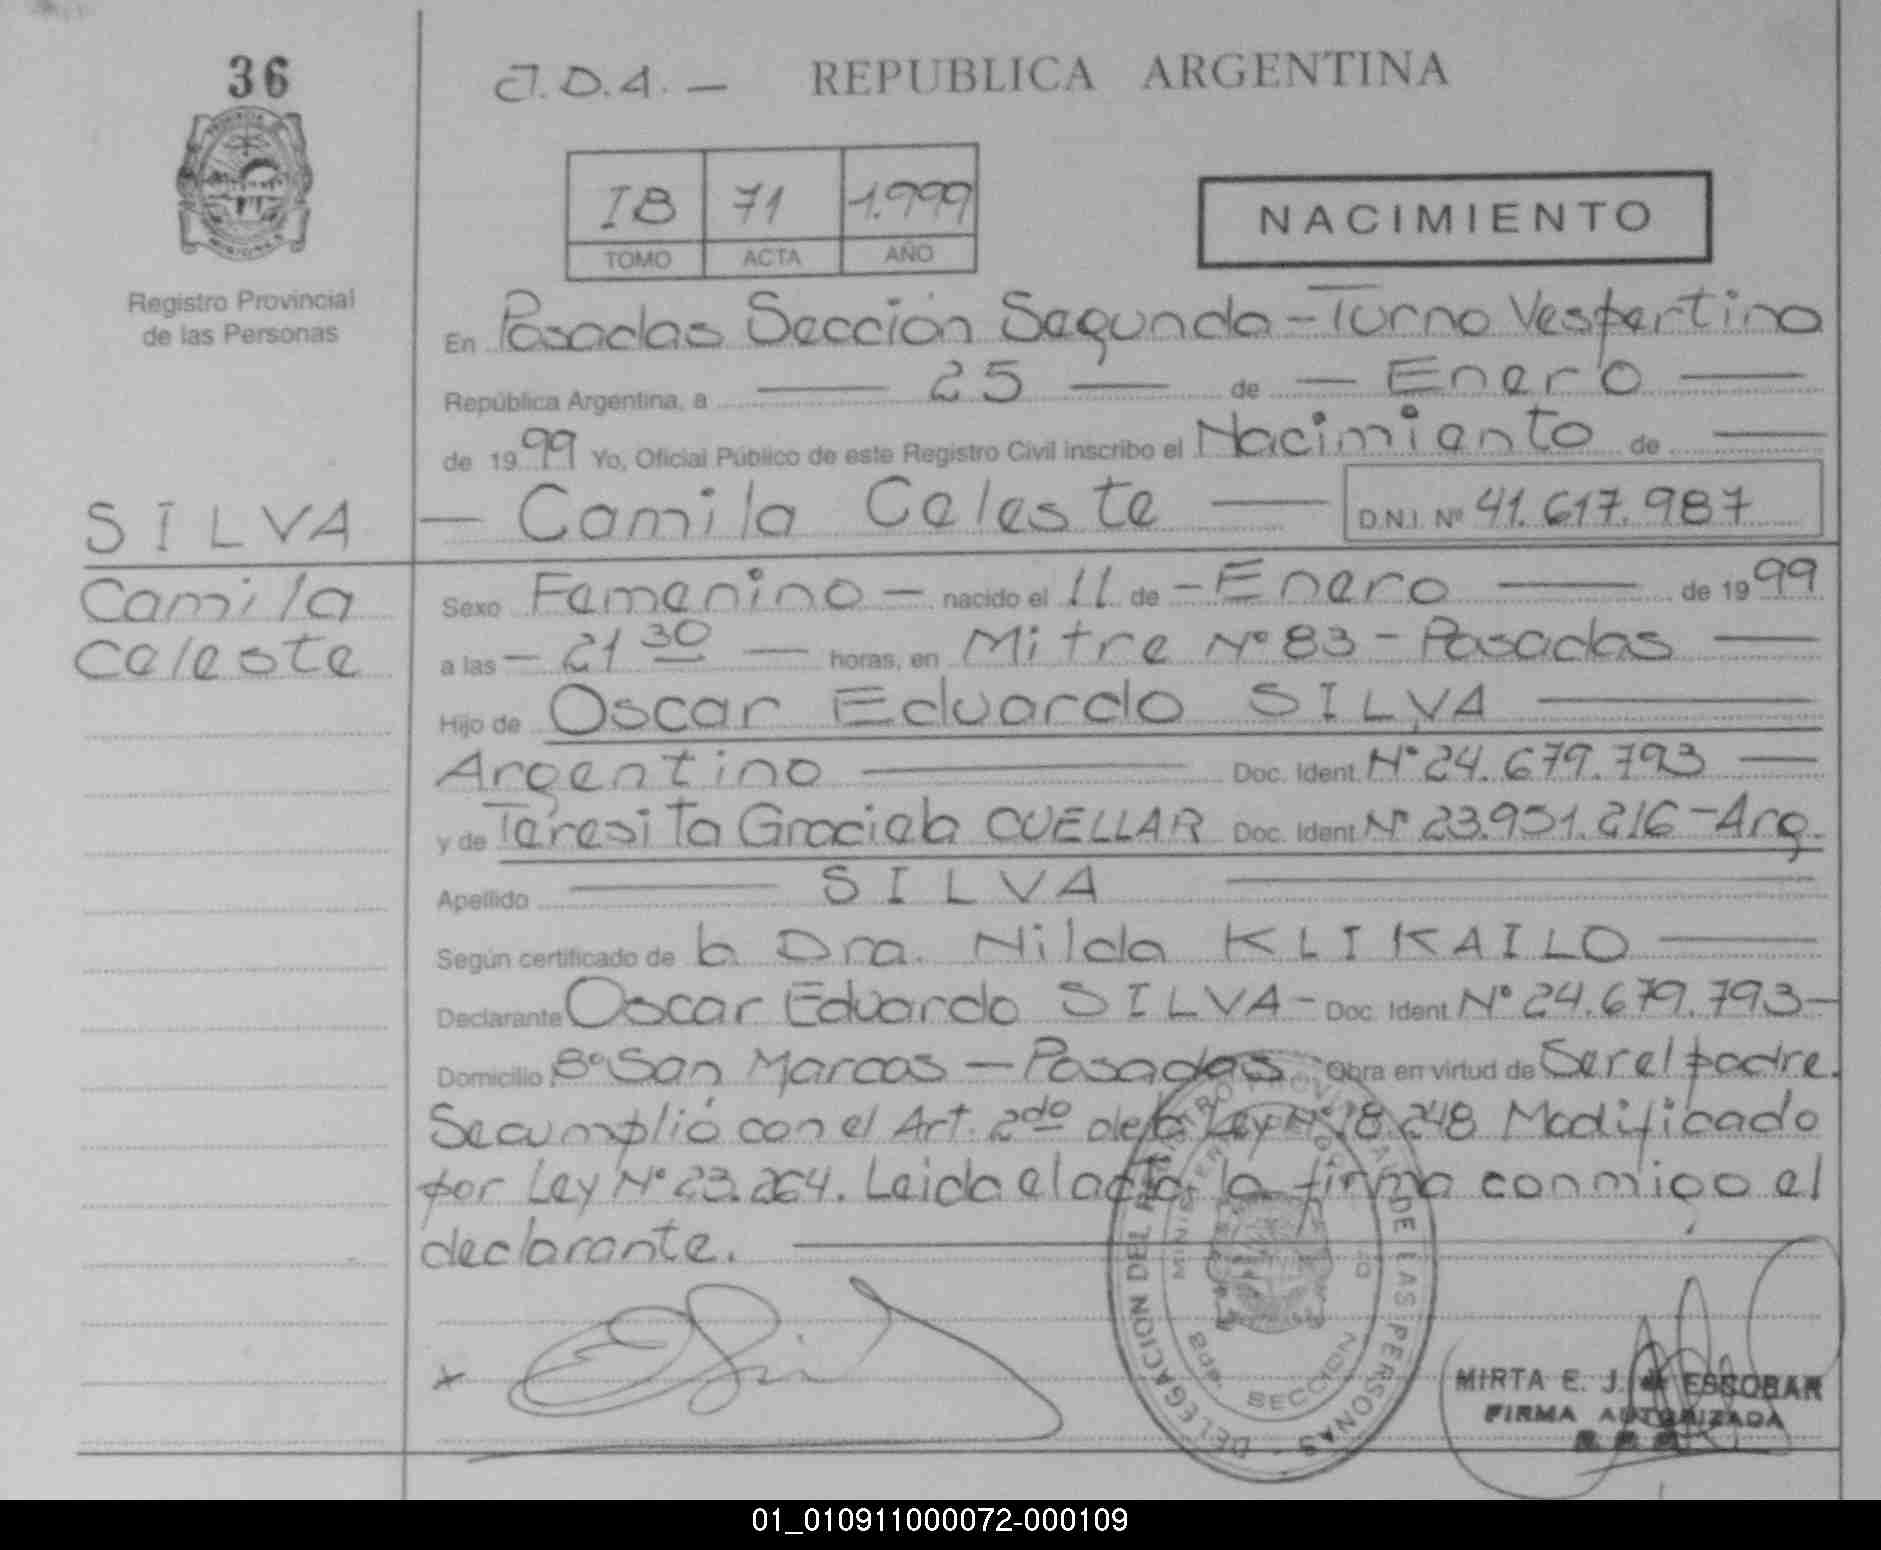 36
J.D.A. — REPUBLICA ARGENTINA
IB 71 1.999
TOMO ACTA AÑO
NACIMIENTO
Registro Provincial
de las Personas
En Posadas Sección Segunda - Turno Vespertino
República Argentina, a — 25 — de — Enero —
de 1999 Yo, Oficial Público de este Registro Civil inscribo el Nacimiento de —
— Camila Celeste — D.N.I. Nº 41.617.987
SILVA
Camila
Celeste
Sexo Femenino — nacido el 11 de — Enero — de 1999
a las — 21 30 — horas, en Mitre Nº 83 - Posadas —
Hijo de Oscar Eduardo SILVA —
Argentino — Doc. Ident. Nº 24.679.793 —
y de Teresita Graciela CUELLAR Doc. Ident. Nº 23.951.216 - Arg.
Apellido — SILVA —
Según certificado de la Dra. Nilda KLIKAILO —
Declarante Oscar Eduardo SILVA - Doc. Ident. Nº 24.679.793 -
Domicilio Bº San Marcos — Posadas Obra en virtud de Ser el padre.
Se cumplió con el Art. 2do de la Ley Nº 18.248 Modificado
por Ley Nº 23.264. Leida el acta, la firma conmigo el
declarante. —
DELEGACION DEL REGISTRO PROVINCIAL DE LAS PERSONAS
SECCION
MIRTA E. J. de ESCOBAR
FIRMA AUTORIZADA
01_010911000072-000109